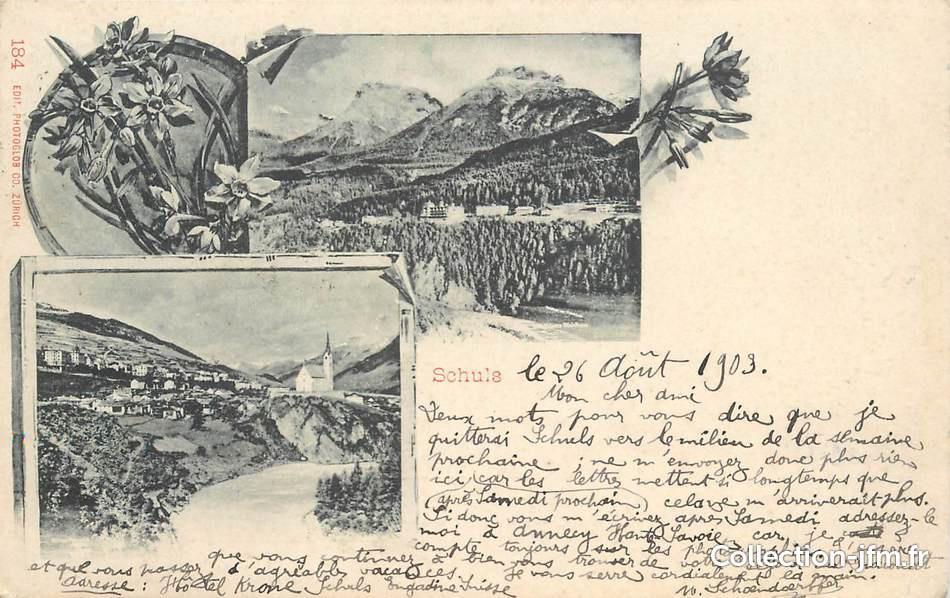 184 EDIT. PHOTOGLOB CO. ZÜRICH
Schuls
le 26 Août 1903.
Mon cher ami
Deux mots pour vous dire que je
quitterai Schuls vers le milieu de la semaine
prochaine ; ne m'envoyez donc plus rien
ici, car les lettres mettent si longtemps que
(après Samedi prochain) cela ne m'arriverait plus.
Si donc vous m'écrivez après Samedi adressez-le
moi à Annecy Haute Savoie, car je
compte toujours sur les
que vous continuez à bien vous trouver de votre
et que vous passez d'agréables vacances. Je vous serre cordialement la main.
Adresse : Hôtel Krone Schuls Engadine Suisse
Collection-jfm.fr